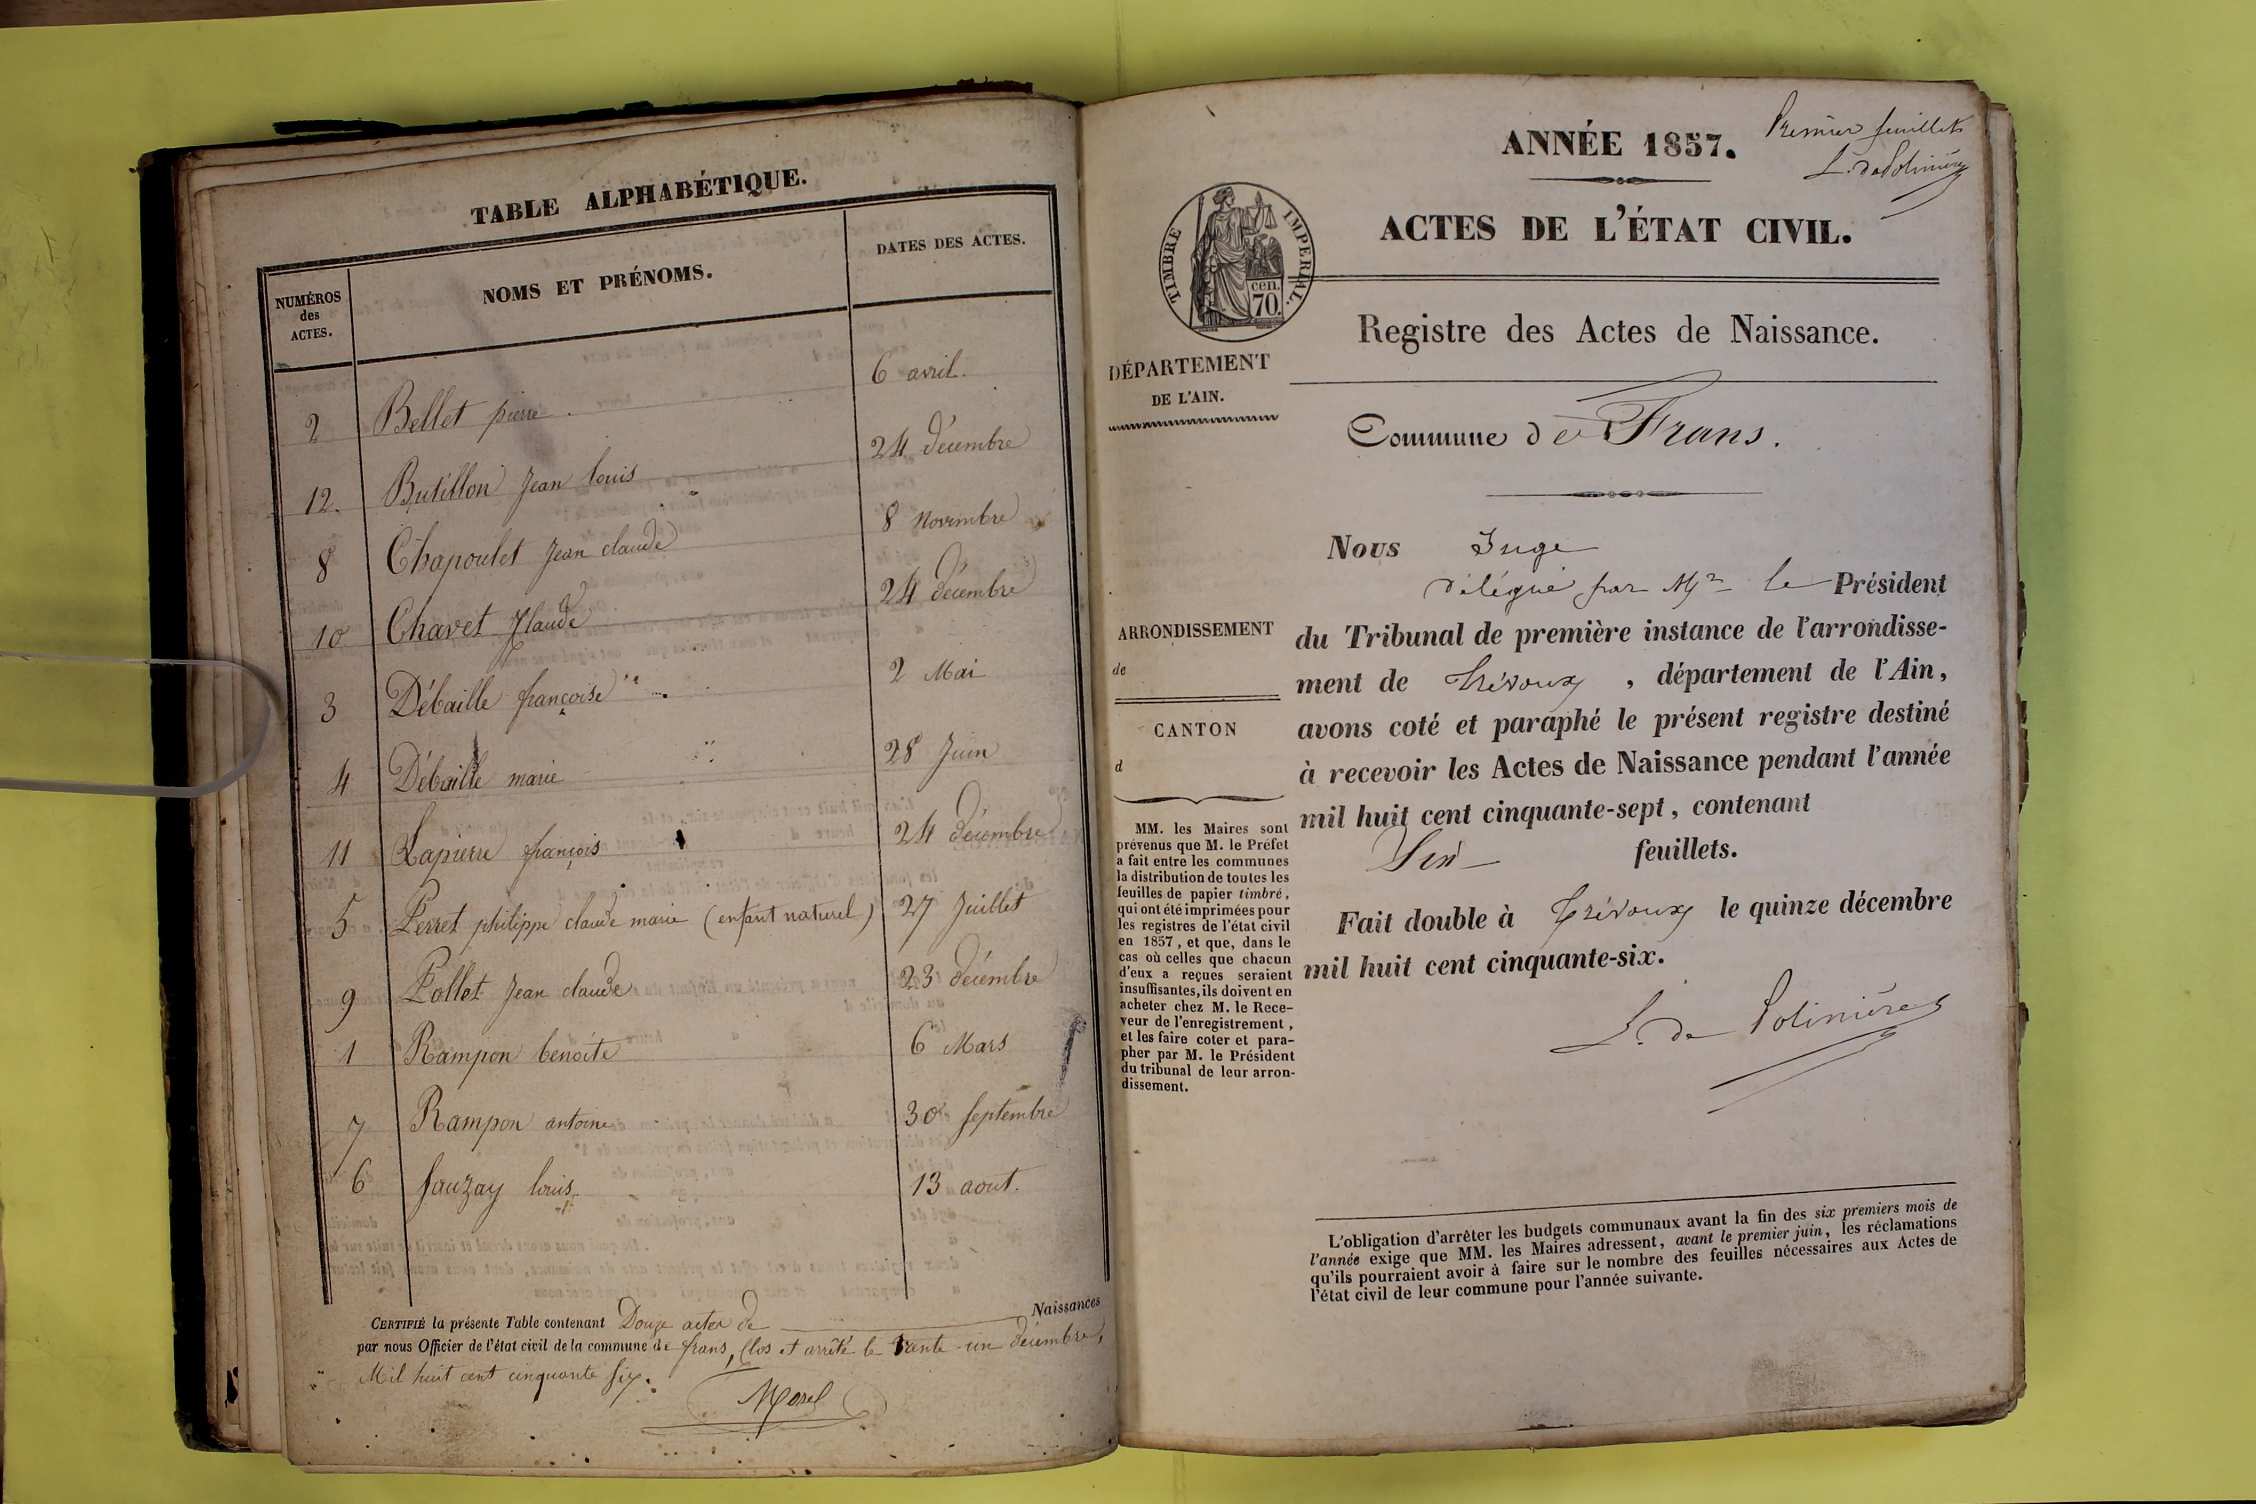 TABLE ALPHABÉTIQUE.
NUMÉROS des ACTES. NOMS ET PRÉNOMS. DATES DES ACTES.
2 Bellet pierre 6 avril.
12. Butillon Jean louis 24 décembre
8 Chapoulet Jean claude 8 Novembre
10 Chavet Claude 24 décembre
3 Débaille françoise 2 Mai
4 Débaille marie 28 Juin
11 Lapierre françois 24 décembre
5 Perret philippe claude marie (enfant naturel) 27 Juillet
9 Pollet Jean claude 23 décembre
1 Rampon benoite 6 Mars
7 Rampon antoine 30 septembre
6 Sauzay louis 13 aout.
CERTIFIÉ la présente Table contenant Douze actes de Naissances
par nous Officier de l'état civil de la commune de frans, Clos et arrêté le trante-un décembre,
Mil huit cent cinquante six.
Morel
Premier feuillet
L. de Polinière
ANNÉE 1857.
ACTES DE L'ÉTAT CIVIL.
TIMBRE IMPERIAL.
cen.
70.
Registre des Actes de Naissance.
DÉPARTEMENT
DE L'AIN.
Commune de Frans.
ARRONDISSEMENT
de
CANTON
d
MM. les Maires sont
prévenus que M. le Préfet
a fait entre les communes
la distribution de toutes les
feuilles de papier timbré,
qui ont été imprimées pour
les registres de l'état civil
en 1857, et que, dans le
cas où celles que chacun
d'eux a reçues seraient
insuffisantes, ils doivent en
acheter chez M. le Rece-
veur de l'enregistrement,
et les faire coter et para-
pher par M. le Président
du tribunal de leur arron-
dissement.
Nous Juge
délégué par Mr le Président
du Tribunal de première instance de l'arrondisse-
ment de Trévoux, département de l'Ain,
avons coté et paraphé le présent registre destiné
à recevoir les Actes de Naissance pendant l'année
mil huit cent cinquante-sept, contenant
Six feuillets.
Fait double à Trévoux le quinze décembre
mil huit cent cinquante-six.
L. de Polinière
L'obligation d'arrêter les budgets communaux avant la fin des six premiers mois de
l'année exige que MM. les Maires adressent, avant le premier juin, les réclamations
qu'ils pourraient avoir à faire sur le nombre des feuilles nécessaires aux Actes de
l'état civil de leur commune pour l'année suivante.